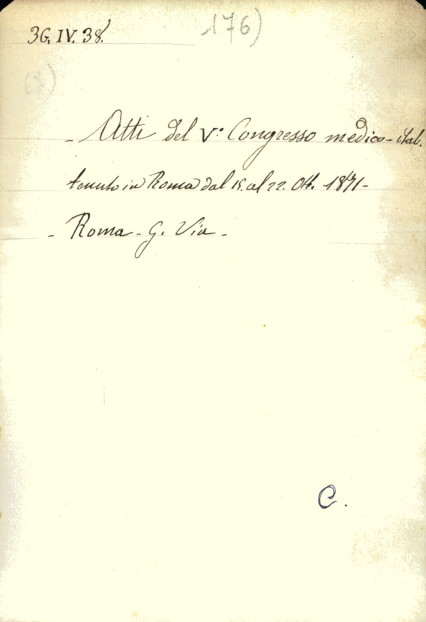 36.IV.38.
176)
- Atti del V.° Congresso medico-ital.
tenuto in Roma dal 15. al 22. Ott. 1871-
- Roma - G. Via -
C.